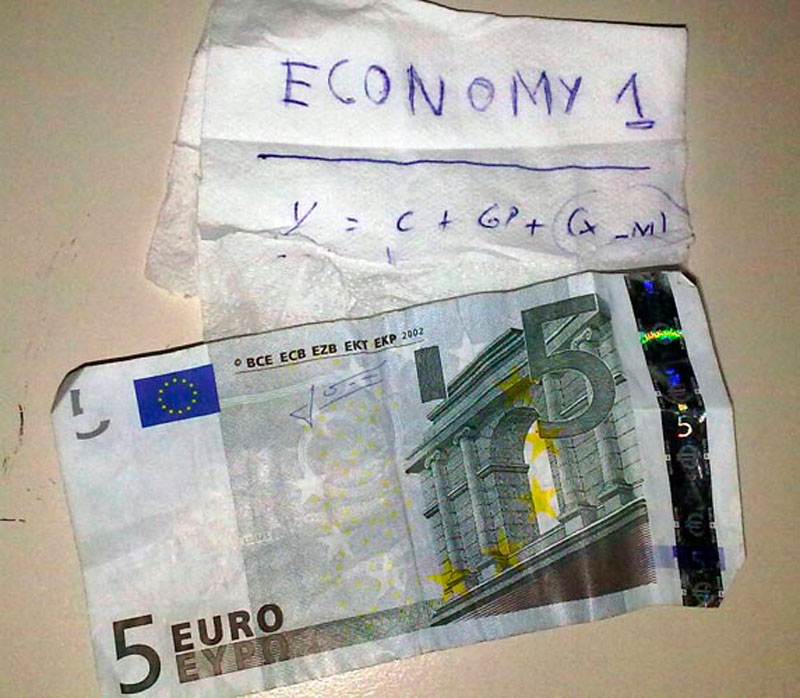 ECONOMY 1
Y = C + GP + (X - M)
© BCE ECB EZB EKT EKP 2002
5
5
5
5 EURO
ΕΥΡΩ